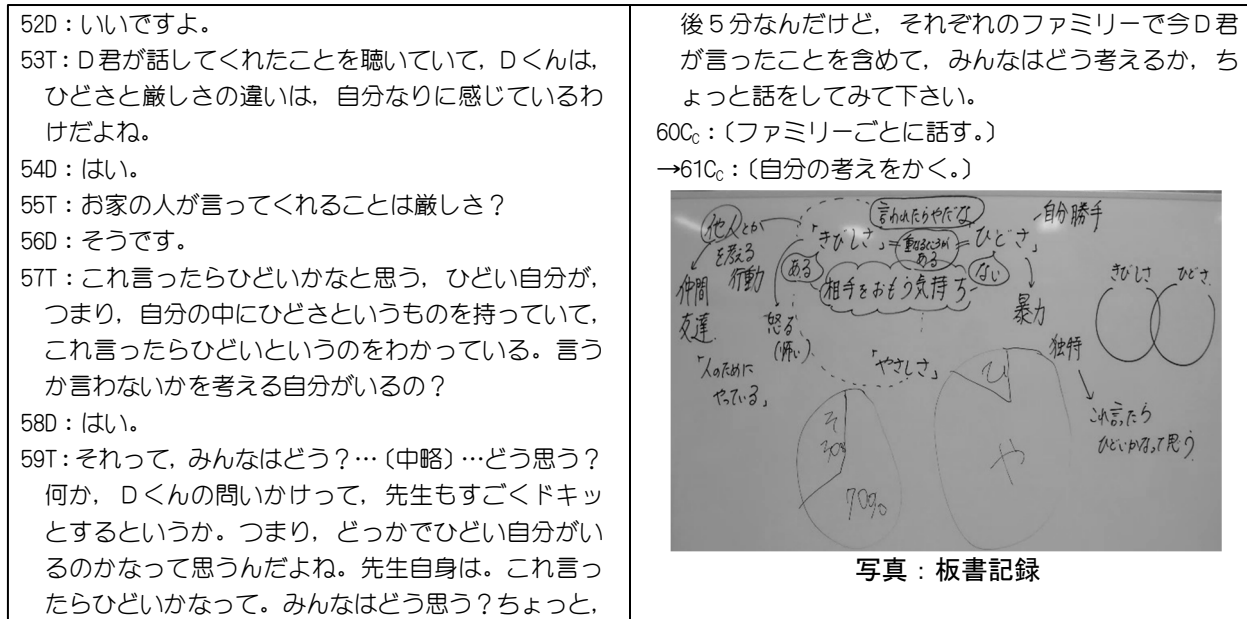 52D：いいですよ。
53T：D君が話してくれたことを聴いていて，Dくんは，
ひどさと厳しさの違いは，自分なりに感じているわ
けだよね。
54D：はい。
55T：お家の人が言ってくれることは厳しさ？
56D：そうです。
57T：これ言ったらひどいかなと思う，ひどい自分が，
つまり，自分の中にひどさというものを持っていて，
これ言ったらひどいというのをわかっている。言う
か言わないかを考える自分がいるの？
58D：はい。
59T：それって，みんなはどう？…〔中略〕…どう思う？
何か，Dくんの問いかけって，先生もすごくドキッ
とするというか。つまり，どっかでひどい自分がい
るのかなって思うんだよね。先生自身は。これ言っ
たらひどいかなって。みんなはどう思う？ちょっと，
後５分なんだけど，それぞれのファミリーで今D君
が言ったことを含めて，みんなはどう考えるか，ち
ょっと話をしてみて下さい。
60Cc：〔ファミリーごとに話す。〕
→61Cc：〔自分の考えをかく。〕
言われたらやだな
自分勝手
他人とか
を考える
行動
「きびしさ」＝重なるところがある＝「ひどさ」
ある
ない
相手をおもう気持ち
仲間
友達
怒る
（怖い）
暴力
きびしさ
ひどさ
「人のために
やっている」
「やさしさ」
独特
これ言ったら
ひどいかなって思う
そ
30%
70%
ひ
や
写真：板書記録